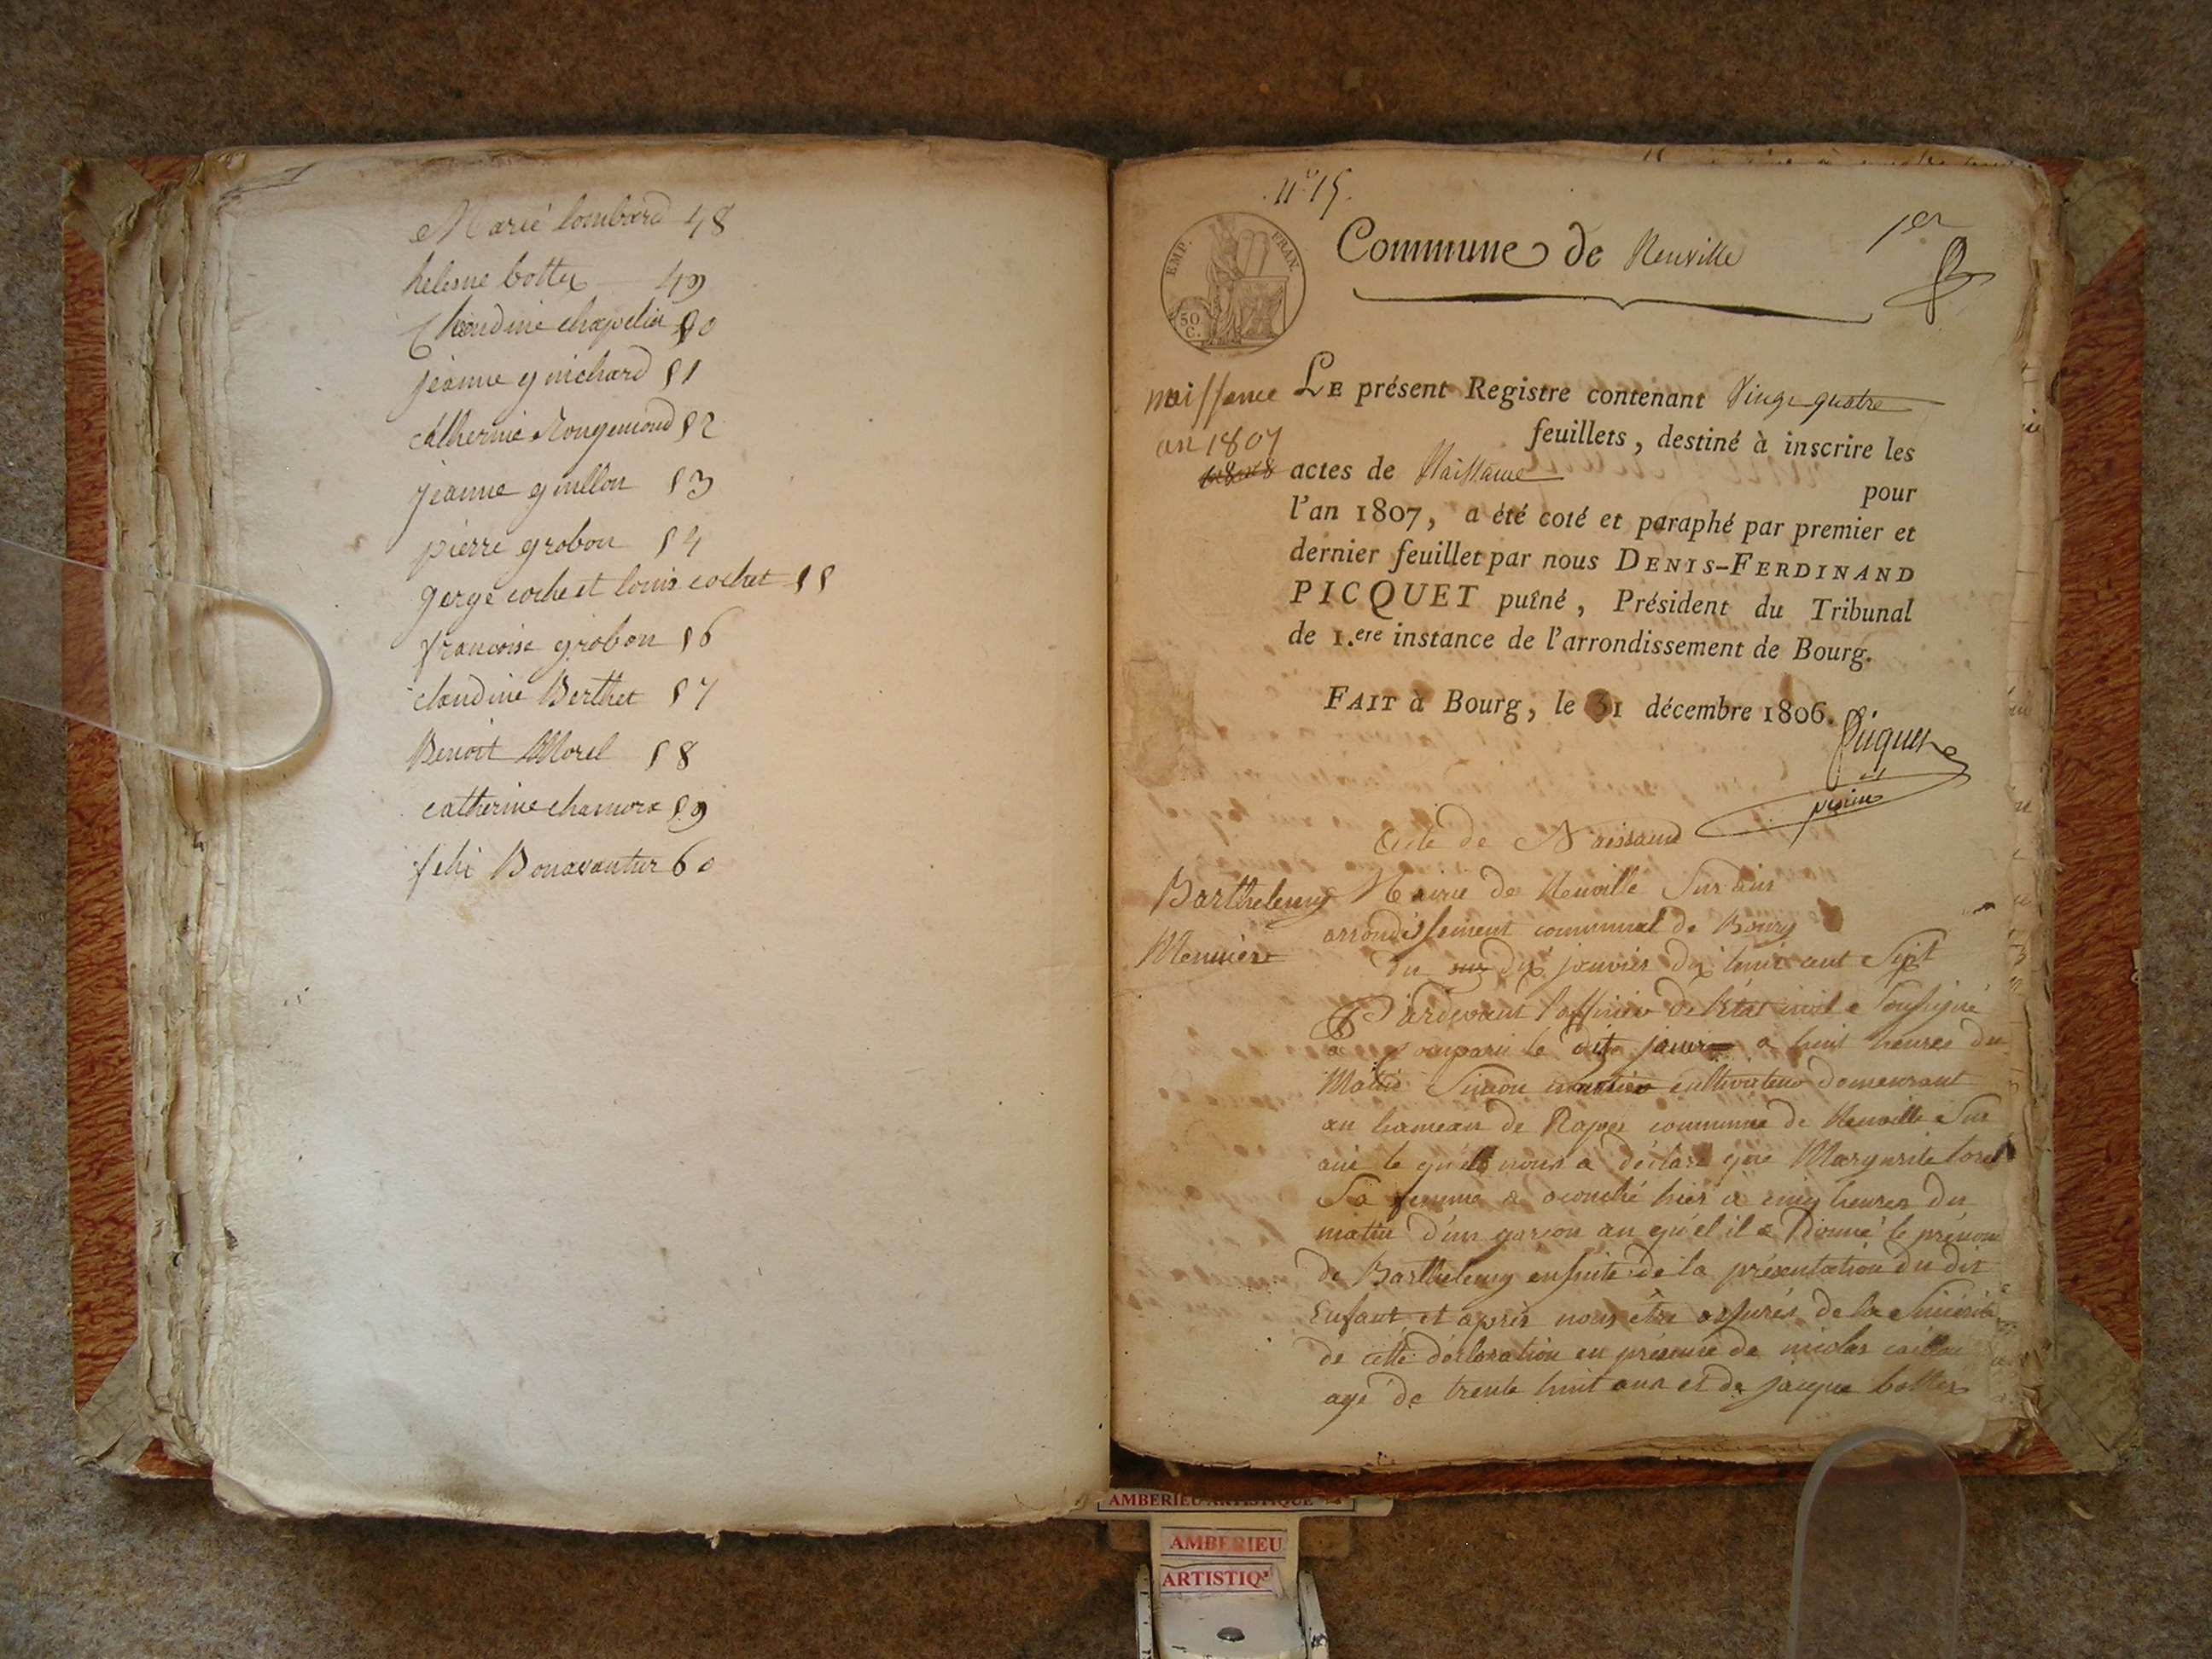 Marie lombard 48
helesne bottex 49
Claudine chapelin 50
jeanne guichard 51
catherine Rougemond 52
jeanne guillon 53
pierre grobon 54
gerge coche et louis cochet 55
francoise grobon 56
claudine Berthet 57
Benoit Morel 58
catherine chamora 59
Bonavantur 60
n° 15.
1er
EMP. FRAN.
50 C.
Commune de Neuville
naissance
an 1807
LE présent Registre contenant Vingt quatre
feuillets, destiné à inscrire les
actes de Naissance
pour
l'an 1807, a été coté et paraphé par premier et
dernier feuillet par nous DENIS-FERDINAND
PICQUET puîné, Président du Tribunal
de 1.ere instance de l'arrondissement de Bourg.
FAIT à Bourg, le 31 décembre 1806.
Picquet
puiné
Acte de Naissance
Barthelemy
Meunier
Mairie de Neuville Sur ain
arrondissement communal de Bourg
du dix janvier dix huit cent Sept
Pardevant l'officier de l'état civil Soussigné
a comparu le dit jour a huit heures du
Matin Simon cultivateur demeurant
au hameau de Rappes commune de Neuville Sur
ain le quel nous a déclaré que Margurite
Sa femme a acouché hier a cinq heures du
matin d'un garcon au quel il a Donné le prénom
de Barthelemy ensuite de la présentation du dit
Enfant et après nous être assurés de la Sincérité
de cette déclaration en présence de nicolas
agé de trente huit ans et de jacque bottex
AMBERIEU ARTISTIQUE
AMBERIEU
ARTISTIQ